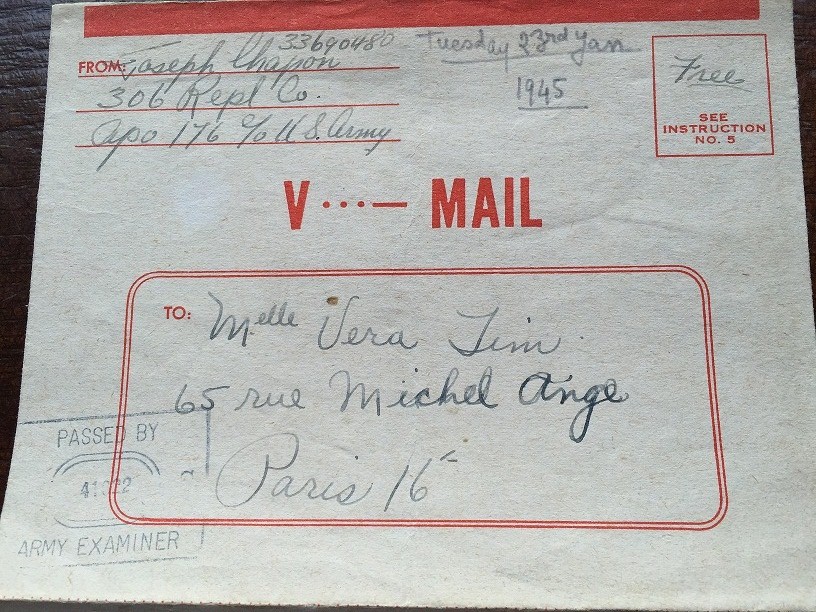 33690480
FROM: Joseph Chapon
306 Repl Co.
Apo 176 c/o U.S. Army
Tuesday 23rd Jan
1945
Free
SEE
INSTRUCTION
NO. 5
V ···— MAIL
TO: Melle Vera
65 rue Michel Ange
Paris 16
PASSED BY
ARMY EXAMINER